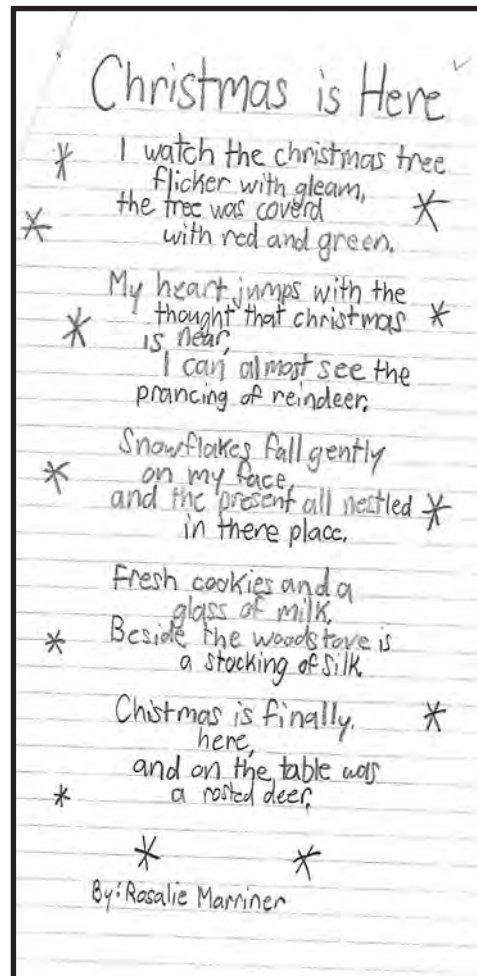 Christmas is Here
I watch the christmas tree
flicker with gleam,
the tree was coverd
with red and green.
My heart jumps with the
thought that christmas
is near,
I can almost see the
prancing of reindeer.
Snowflakes fall gently
on my face,
and the present all nestled
in there place.
Fresh cookies and a
glass of milk,
Beside the woodstove is
a stocking of silk
Chistmas is finally,
here,
and on the table was
a rosted deer.
By: Rosalie Marriner